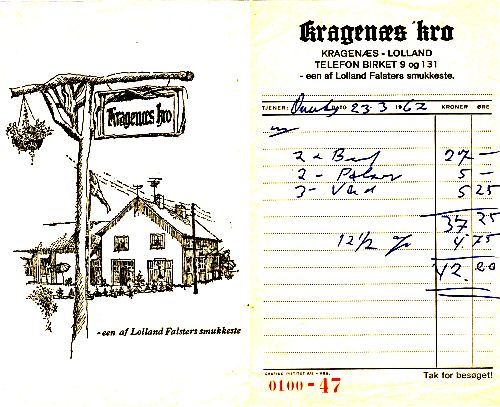 Kragenæs kro
- een af Lolland Falsters smukkeste
Kragenæs kro
KRAGENÆS - LOLLAND
TELEFON BIRKET 9 og 131
- een af Lolland Falsters smukkeste.
TJENER: 23 3 1962 KRONER ØRE
2 27 —
2 - 5 —
3 - 5 25
37 25
12 1/2 % 4.75
42.00
0100 - 47
Tak for besøget!